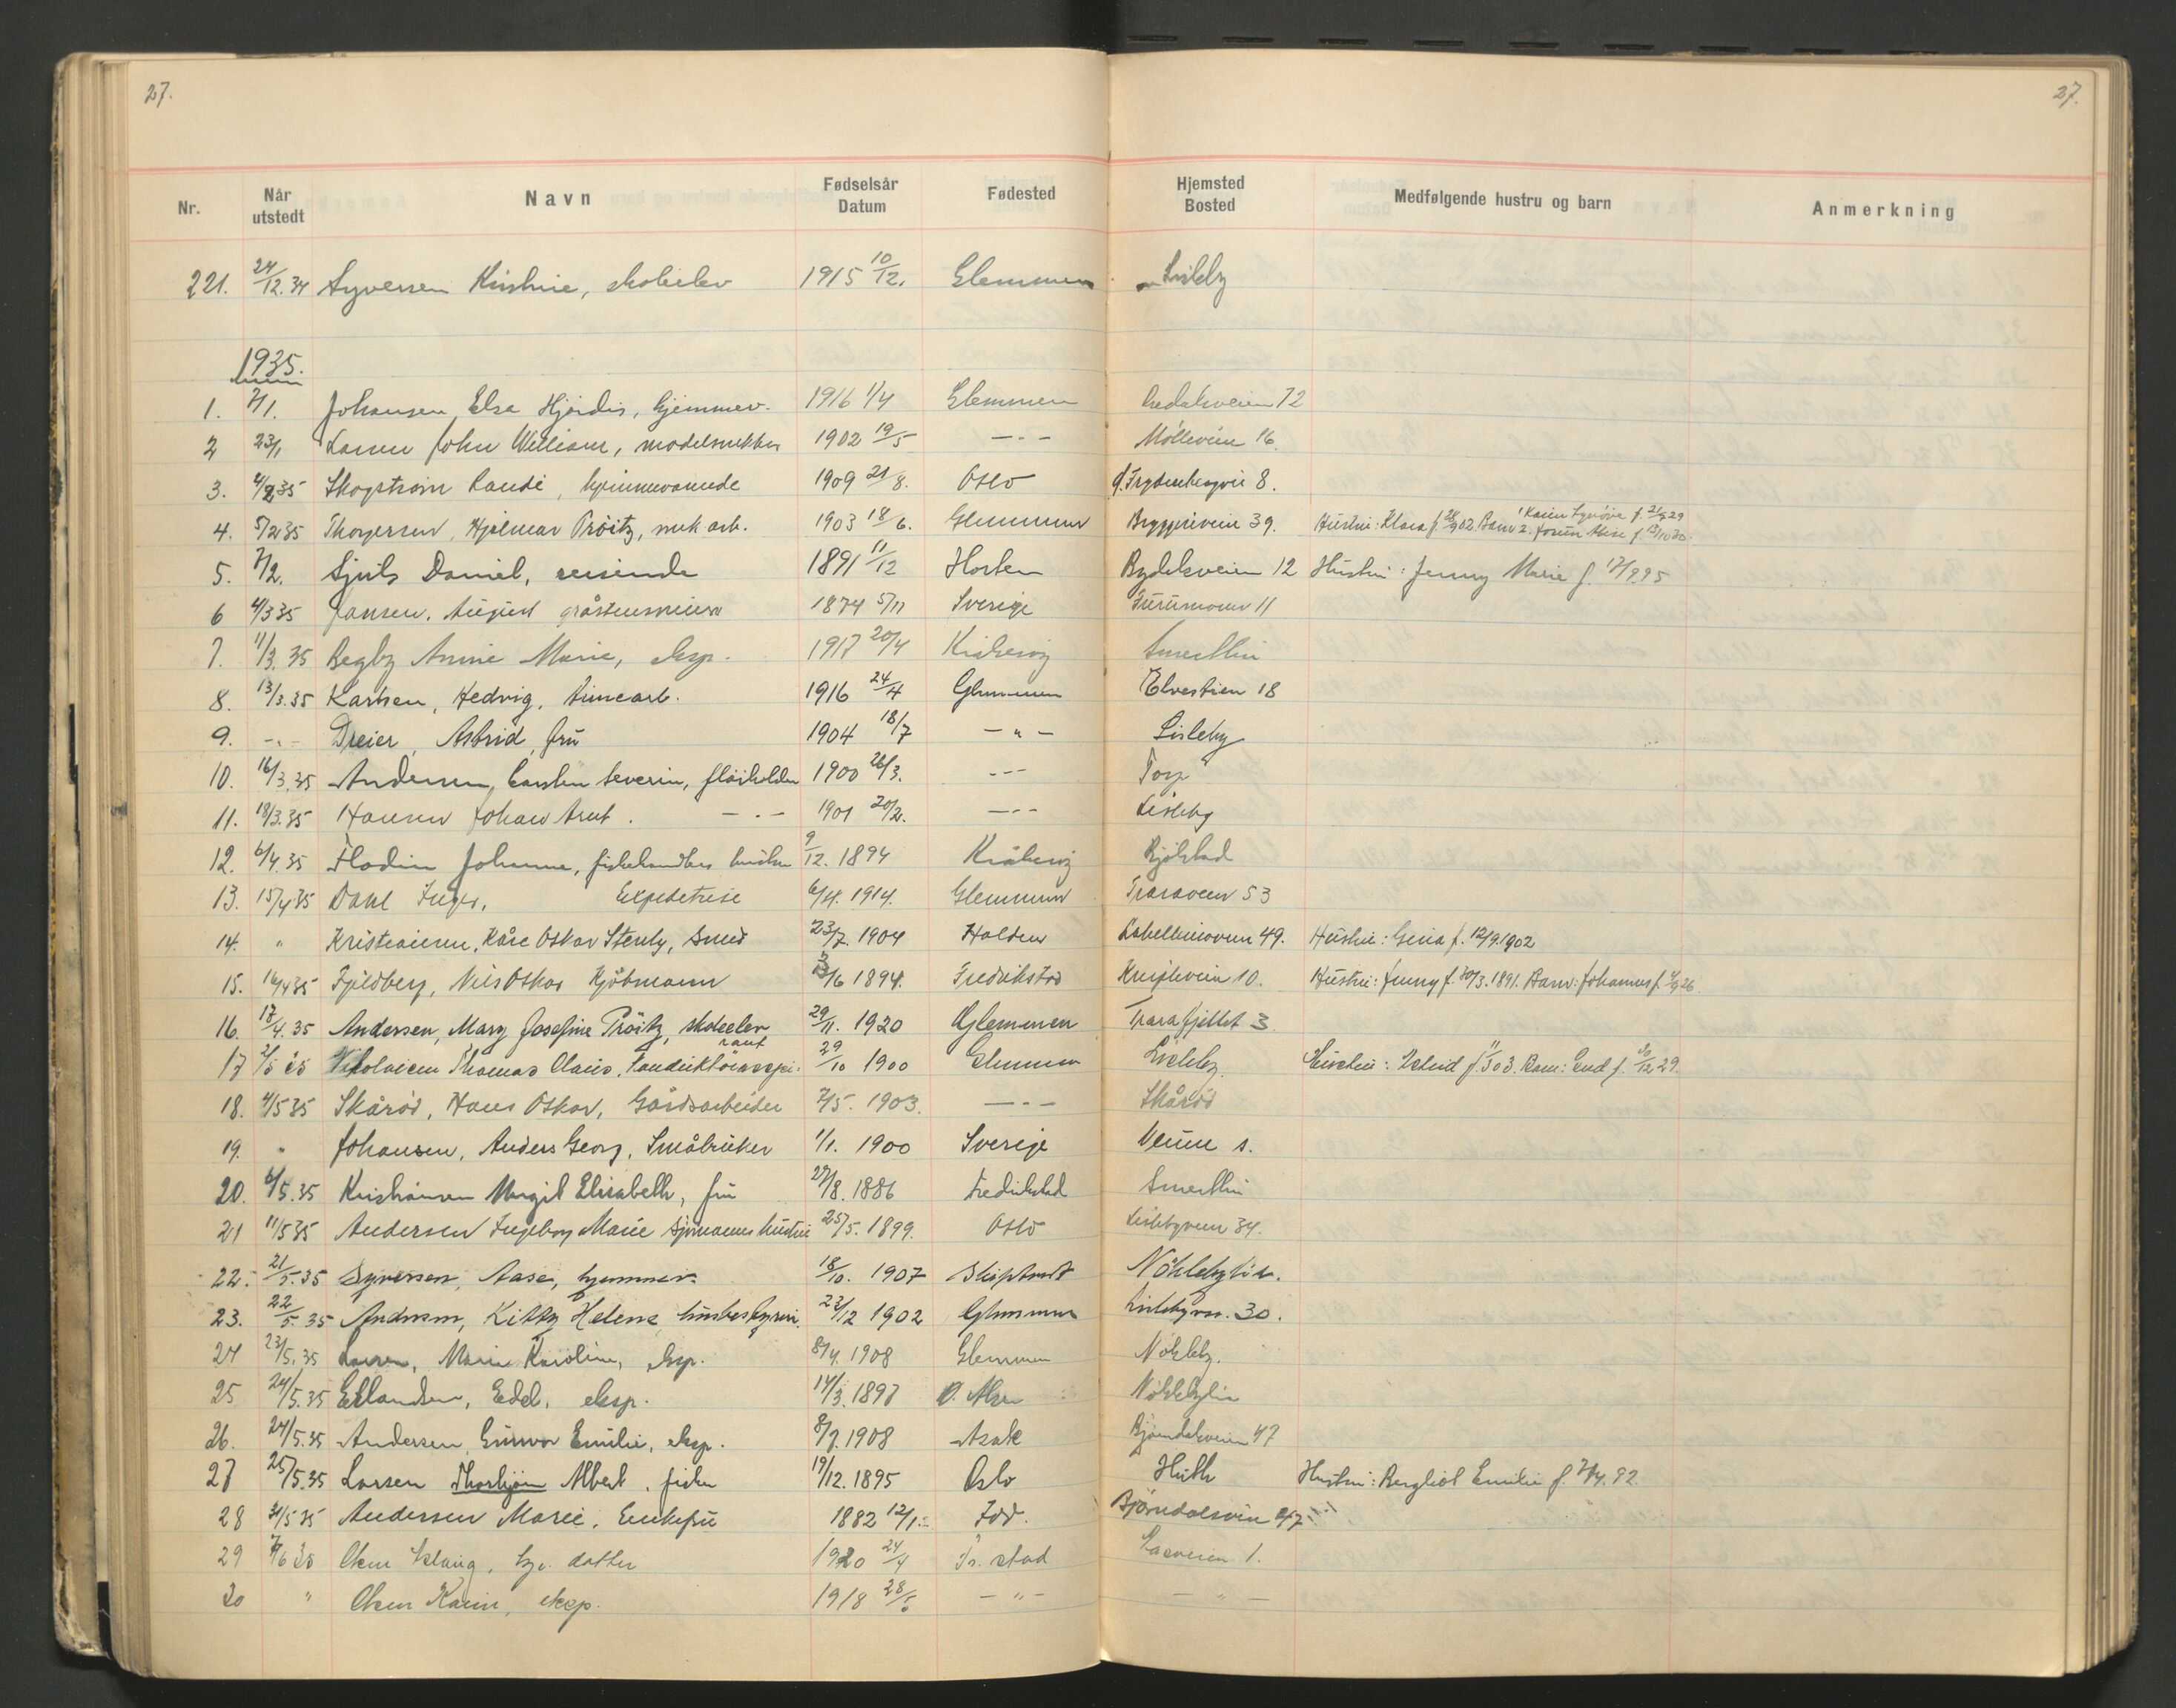 27. 27.
Nr. Når utstedt Navn Fødselsår Datum Fødested Hjemsted Bosted Medfølgende hustru og barn Anmerkning
221. 24/12.34 Syversen Kristine, skoleelev 1915 10/12. Glemmen Lisleby
1935.
1. 7/1. Johansen, Elsa Hjørdis, hjemmev. 1916 1/4 Glemmen 72
2 23/1 Larsen John William, modelsnekker 1902 19/5 —"— Mölleveien 16.
3. 4/2 35 Skogstrøm Randi, hjemmeværende 1909 21/8. Oslo 8.
4. 5/2 35 Thorgersen, Hjalmar Pröitz, mek arb. 1903 18/6. Glemmen Bryggeriveien 39. Hustru: Klara f. 28/ 902 Barn 1 Karin f. 29 2. f. 30.
5. 7/2. Sjuls Daniel, reisende 1891 11/12 Horten Bydalsveien 12 Hustru: Jenny Marie f. 17/9 95
6 4/3 35 Jansen, August 1874 5/11 Sverige Furumoen 11
7. 11/3. 35 Begby Annie Marie, eksp. 1917 20/4 Kråkeröy Smertlin
8. 13/3.35 Karlsen, Hedvig, timearb. 1916 24/4 Glemmen Elvestien 18
9. —"— Dreier, Astrid, fru 1904 18/7 —"— Lisleby
10. 16/3.35 Andersen, Carsten Severin, 1900 26/3. —"— Torp
11. 18/3.35 Hansen Johan Arnt. —"— 1901 20/2. —"— Lisleby
12. 6/4.35 Flodin Johanne, fiskehandlers hustru 9/12. 1894 Kråkeröy Bjölstad
13. 15/4 35 Dahl Inger, Expeditrise 6/4. 1914. Glemmen Traraveien 53
14. " Kristiansen, Kåre Oskar Stenly, Smed 23/7. 1904 Halden 49. Hustru: Gina f. 12/9.1902
15. 16/4 35 Fjeldberg, Nils Oskar Kjöbmann 3/6 1894. Fredrikstad Knipleveien 10. Hustru: Jenny f. 30/3. 1891. Barn: Johannes f. 26
16. 17/4.35 Andersen, Mary Josefine Pröitz, skoleelev 29/11. 1920 Glemmen Trarafjellet 3
17 2/5 35 Nikolaisen Thomas Claus, 29/10 1900 Glemmen Lisleby Hustru: Astrid f. 11/5 03. Barn: f. 30/12 29.
18. 4/5 35 Skåröd, Hans Oskar, Gårdsarbeider 7/5. 1903. —"— Skåröd
19. " Johansen, Anders Georg, Småbruker 1/1. 1900 Sverige Veum s.
20. 6/5.35 Kristiansen Margit Elisabeth, fru 27/8. 1886 Fredrikstad Smertlin
21 11/5 35 Andersen Ingeborg Marie Sjömannshustru 25/5. 1899. Oslo Lislebyveien 34.
22. 21/5.35 Syversen, Aase, hjemmev. 18/10. 1907 Skiptvedt Nöklebylia.
23. 22/5. 35 Andersen, Kitty Helene husbestyrer. 23/12 1902 Glemmen Lislebyvn. 30.
24 23/5.35 Larsen, Marie Karoline, eksp. 8/4. 1908 Glemmen Nökleby.
25 24/5.35 Erlandsen, Edel, eksp. 14/3. 1897 Nöklebylia
26. 24/5.35 Andersen, Gunvor Emilie, eksp. 8/7. 1908 Asak Bjørndalsveien 47
27 25/5.35 Larsen Thorbjørn Albert, fisker 19/12. 1895 Oslo Huth Hustru: Bergliot Emilie f. 7/4. 92.
28 31/5 35 Andersen Marie, Enkefru 1882 12/1. Fdr. Bjørndalsveien 47
29 7/6 35 Olsen hj. datter 1920 24/4 Fr. stad 1.
30 " Olsen Karin, eksp. 1918 28/5 —"— —"—